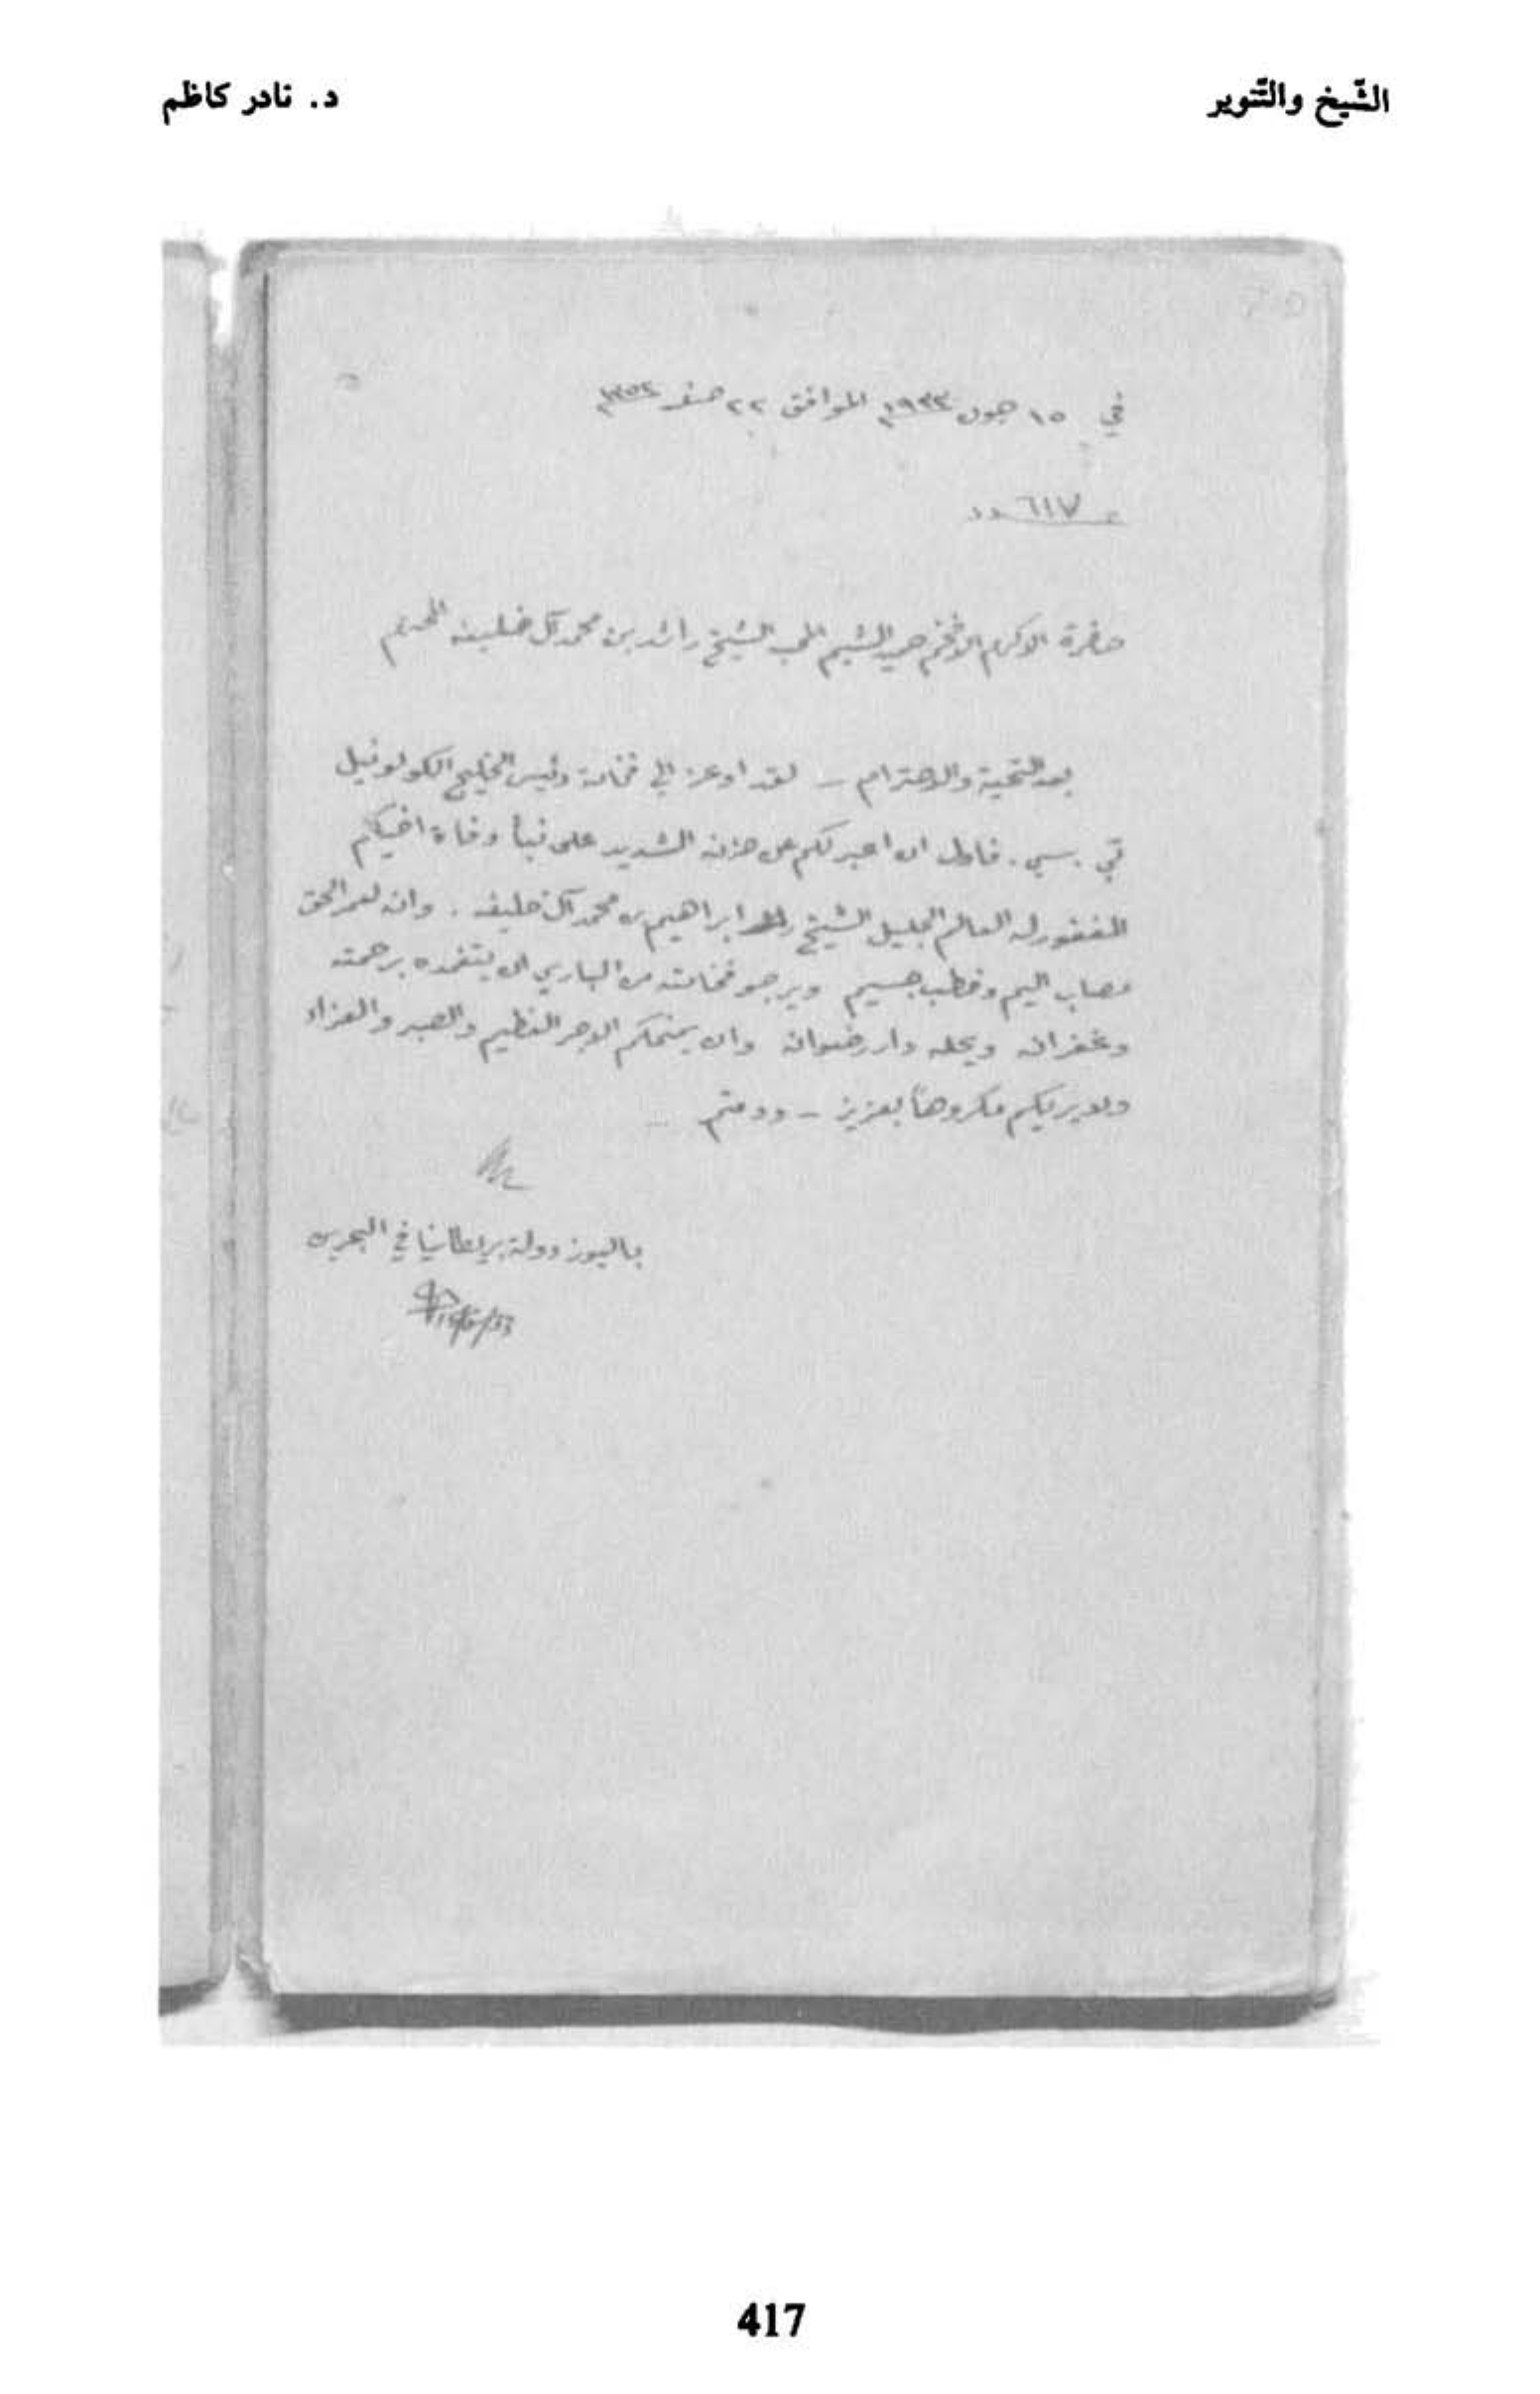 الشّيخ والتّنوير
د. نادر كاظم
في ١٥ جون ١٩٣٣م الموافق ٢٢ صفر ١٣٥٢
٦١٧
حضرة الاكرم الافخم حميد الشيم المحب الشيخ راشد بن محمد آل خليفه المحترم
بعد التحية والاحترام – لقد اوعز الي فخامة رئيس الخليج الكولونيل
تي . سي . فاول ان اعبر لكم عن حزنه الشديد على نبأ وفاة اخيكم
المغفور له العالم الجليل الشيخ ابراهيم بن محمد آل خليفه . وانه لعمر الحق
مصاب اليم وخطب جسيم ويرجو فخامته من الباري ان يتغمده برحمته
وغفرانه ويحله دار رضوانه وان يمنحكم الاجر العظيم والصبر والعزاء
ولا يريكم مكروهاً بعزيز – ودمتم
باليوز دولة بريطانيا في البحرين
15/6/33
417